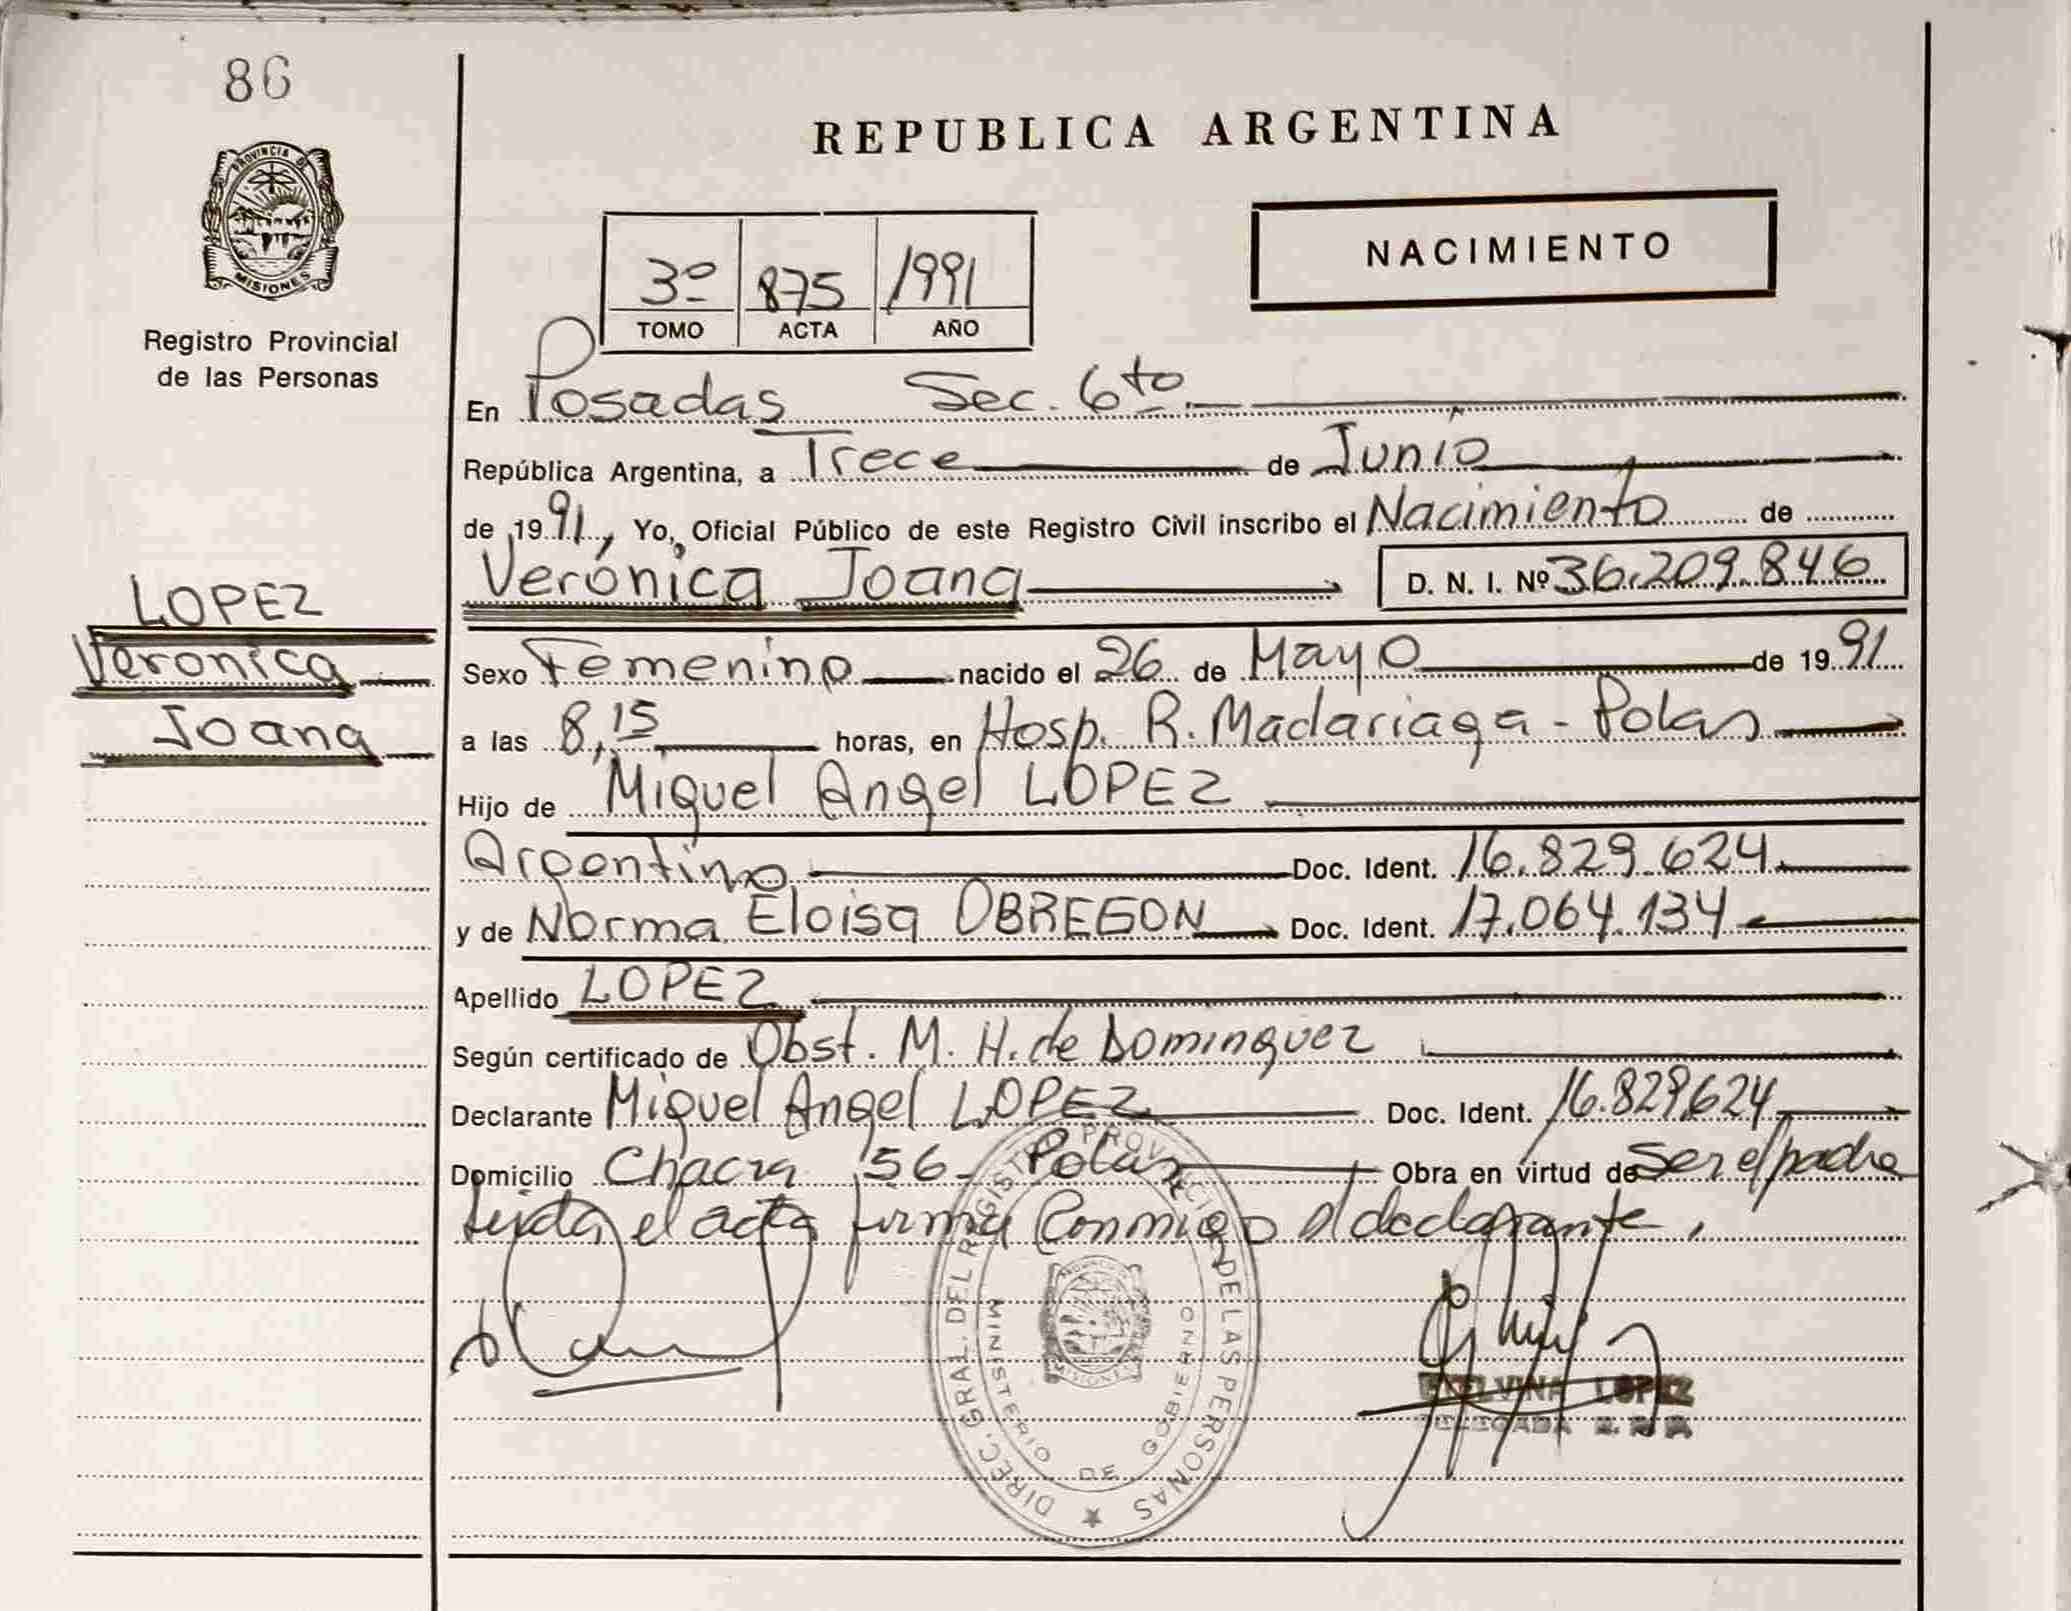 86
PROVINCIA DE
MISIONES
Registro Provincial
de las Personas
LOPEZ
Veronica
Joana
REPUBLICA ARGENTINA
NACIMIENTO
3º 875 1991
TOMO ACTA AÑO
En Posadas Sec. 6to.
República Argentina, a Trece de Junio
de 1991, Yo, Oficial Público de este Registro Civil inscribo el Nacimiento de
Verónica Joana D. N. I. Nº 36.209.846
Sexo Femenino nacido el 26 de Mayo de 1991
a las 8,15 horas, en Hosp. R. Madariaga - Pdas
Hijo de Miguel Angel LOPEZ
Argentino Doc. Ident. 16.829.624
y de Norma Eloisa OBREGON Doc. Ident. 17.064.134
Apellido LOPEZ
Según certificado de Obst. M. H. de Dominguez
Declarante Miguel Angel LOPEZ Doc. Ident. 16.829.624
Domicilio Chacra 56 - Pdas Obra en virtud de Ser el padre
Leyda el acta firma Conmigo el declarante,
DIREC. GRAL. DEL REGISTRO PROVINCIAL DE LAS PERSONAS
MINISTERIO DE GOBIERNO
MISIONES
LOPEZ
DELEGADA